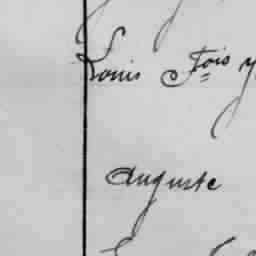 Louis Fois
Auguste